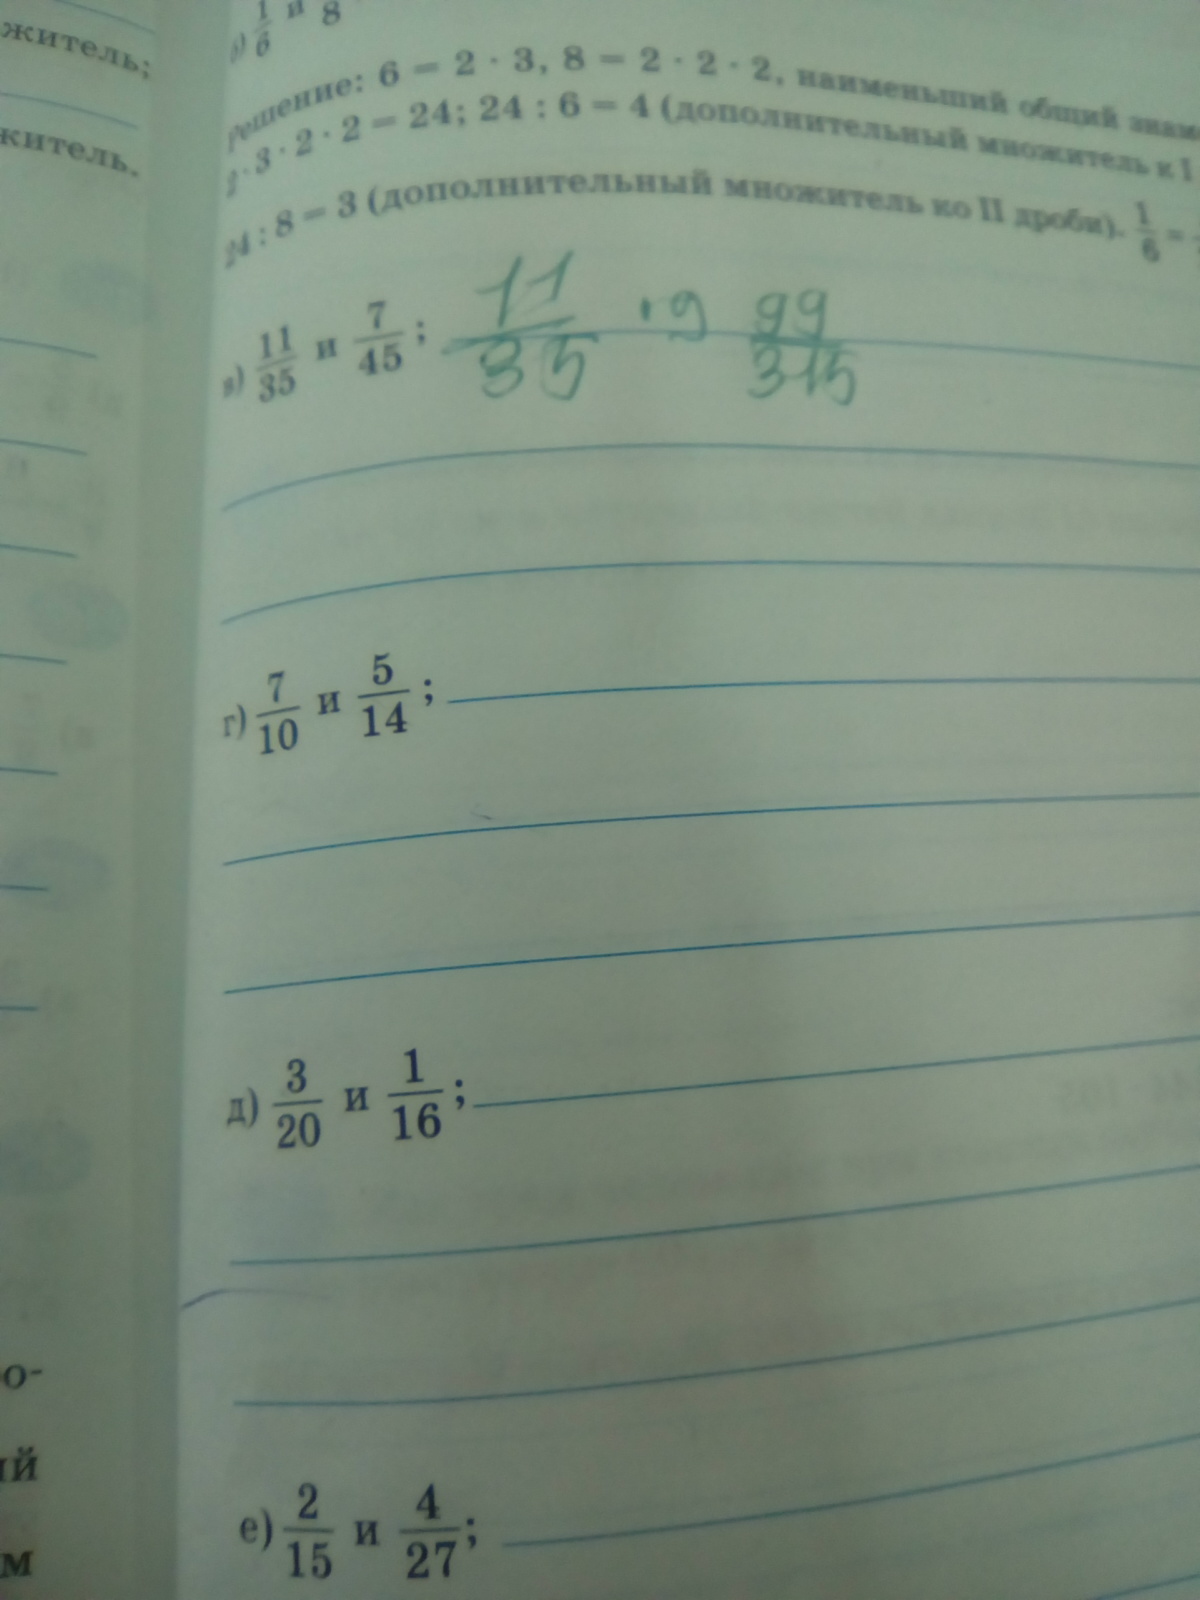 житель;
житель.
б) 1/6 и 8
Решение: 6 = 2 · 3, 8 = 2 · 2 · 2, наименьший общий знам
2 · 3 · 2 · 2 = 24; 24 : 6 = 4 (дополнительный множитель к I
24 : 8 = 3 (дополнительный множитель ко II дроби). 1/6 =
в) 11/35 и 7/45; 11/35 · 9 99/315
г) 7/10 и 5/14;
д) 3/20 и 1/16;
о-
ий
м
е) 2/15 и 4/27;